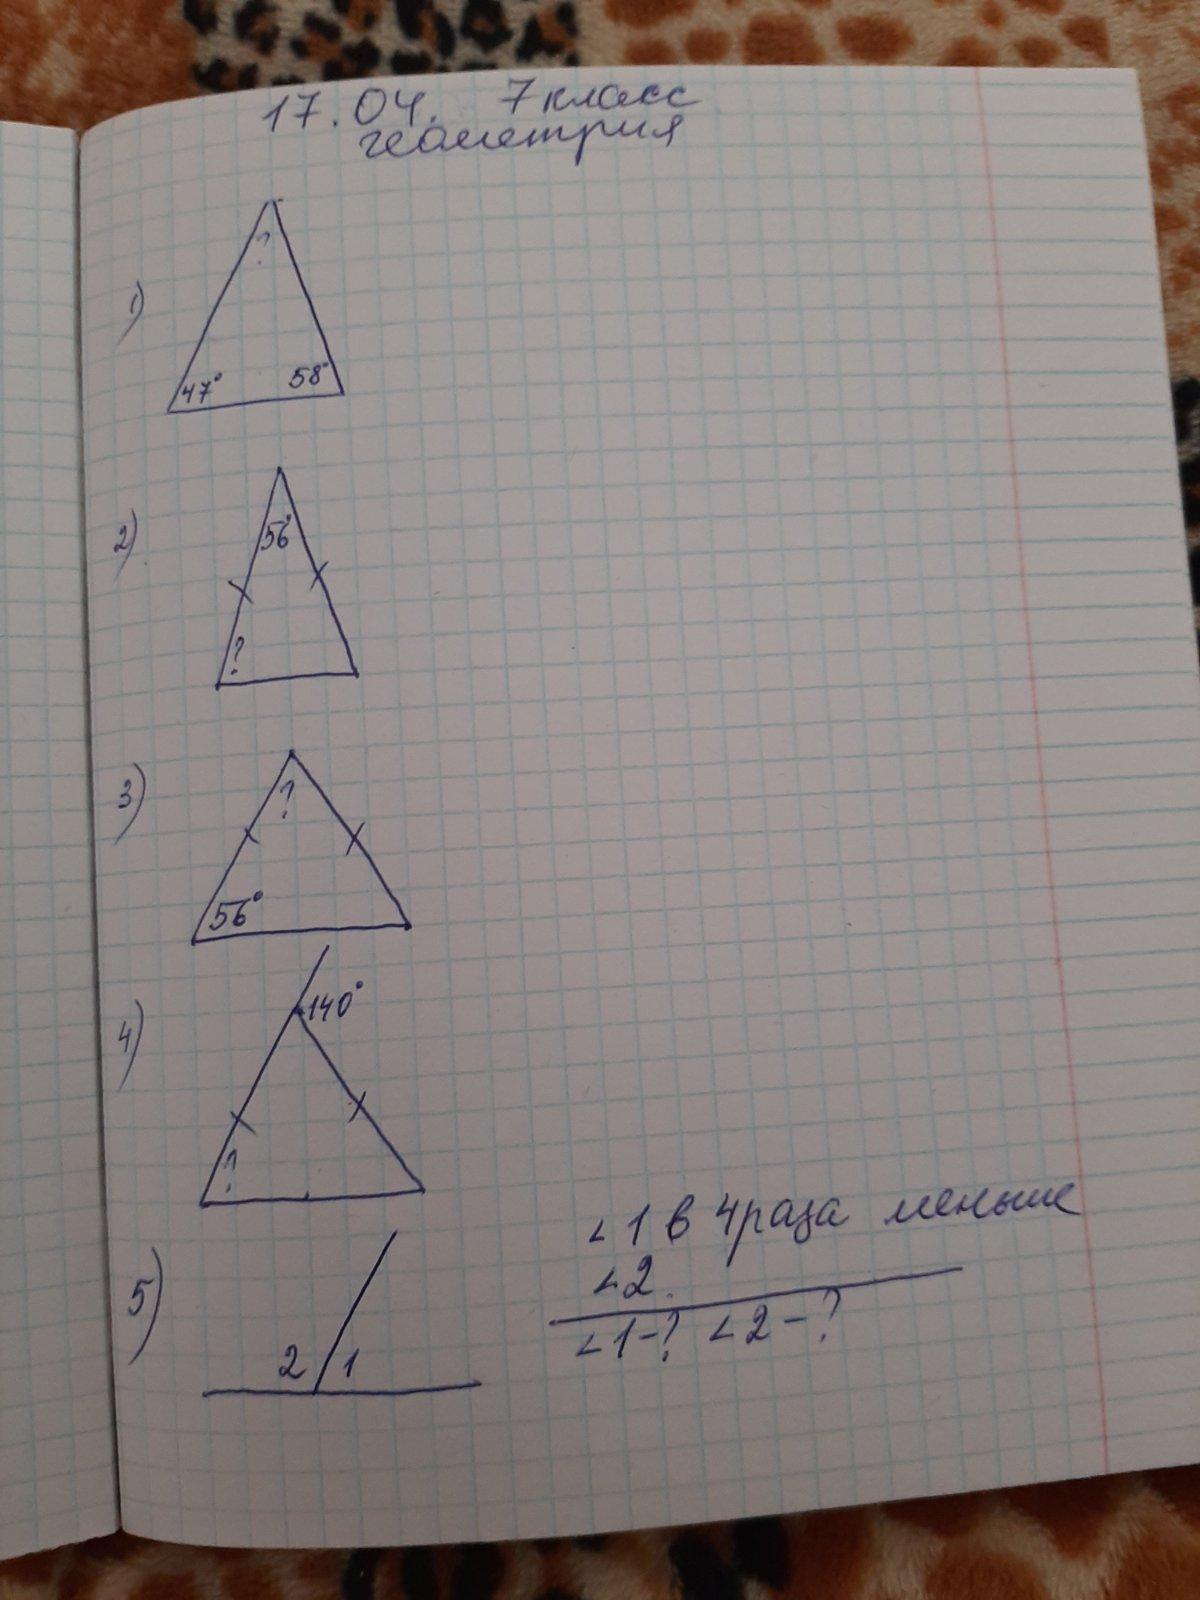 17.04. 7 класс
геометрия
1)
?
47° 58°
2)
56°
?
3)
?
56°
4)
140°
?
5)
∠1 в 4 раза меньше
∠2.
∠1-? ∠2-?
2 1